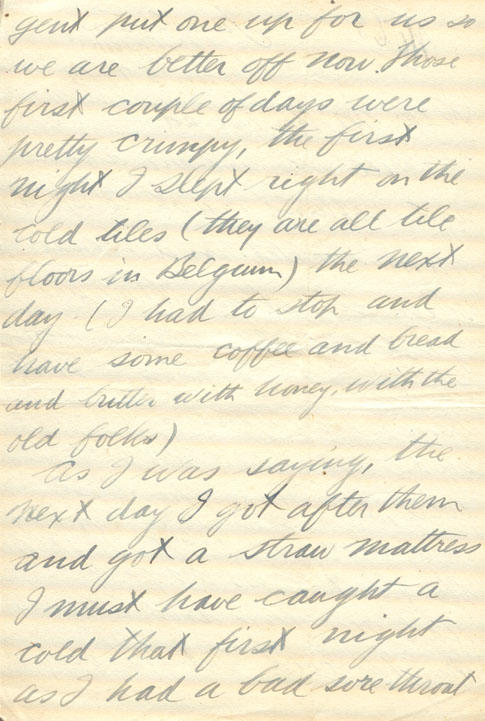 gent put one up for us so
we are better off now. Those
first couple of days were
pretty crimpy, the first
night I slept right on the
cold tiles (they are all tile
floors in Belgium) the next
day. (I had to stop and
have some coffee and bread
and butter with honey, with the
old folks)
As I was saying, the
next day I got after them
and got a straw mattress
I must have caught a
cold that first night
as I had a bad sore throat